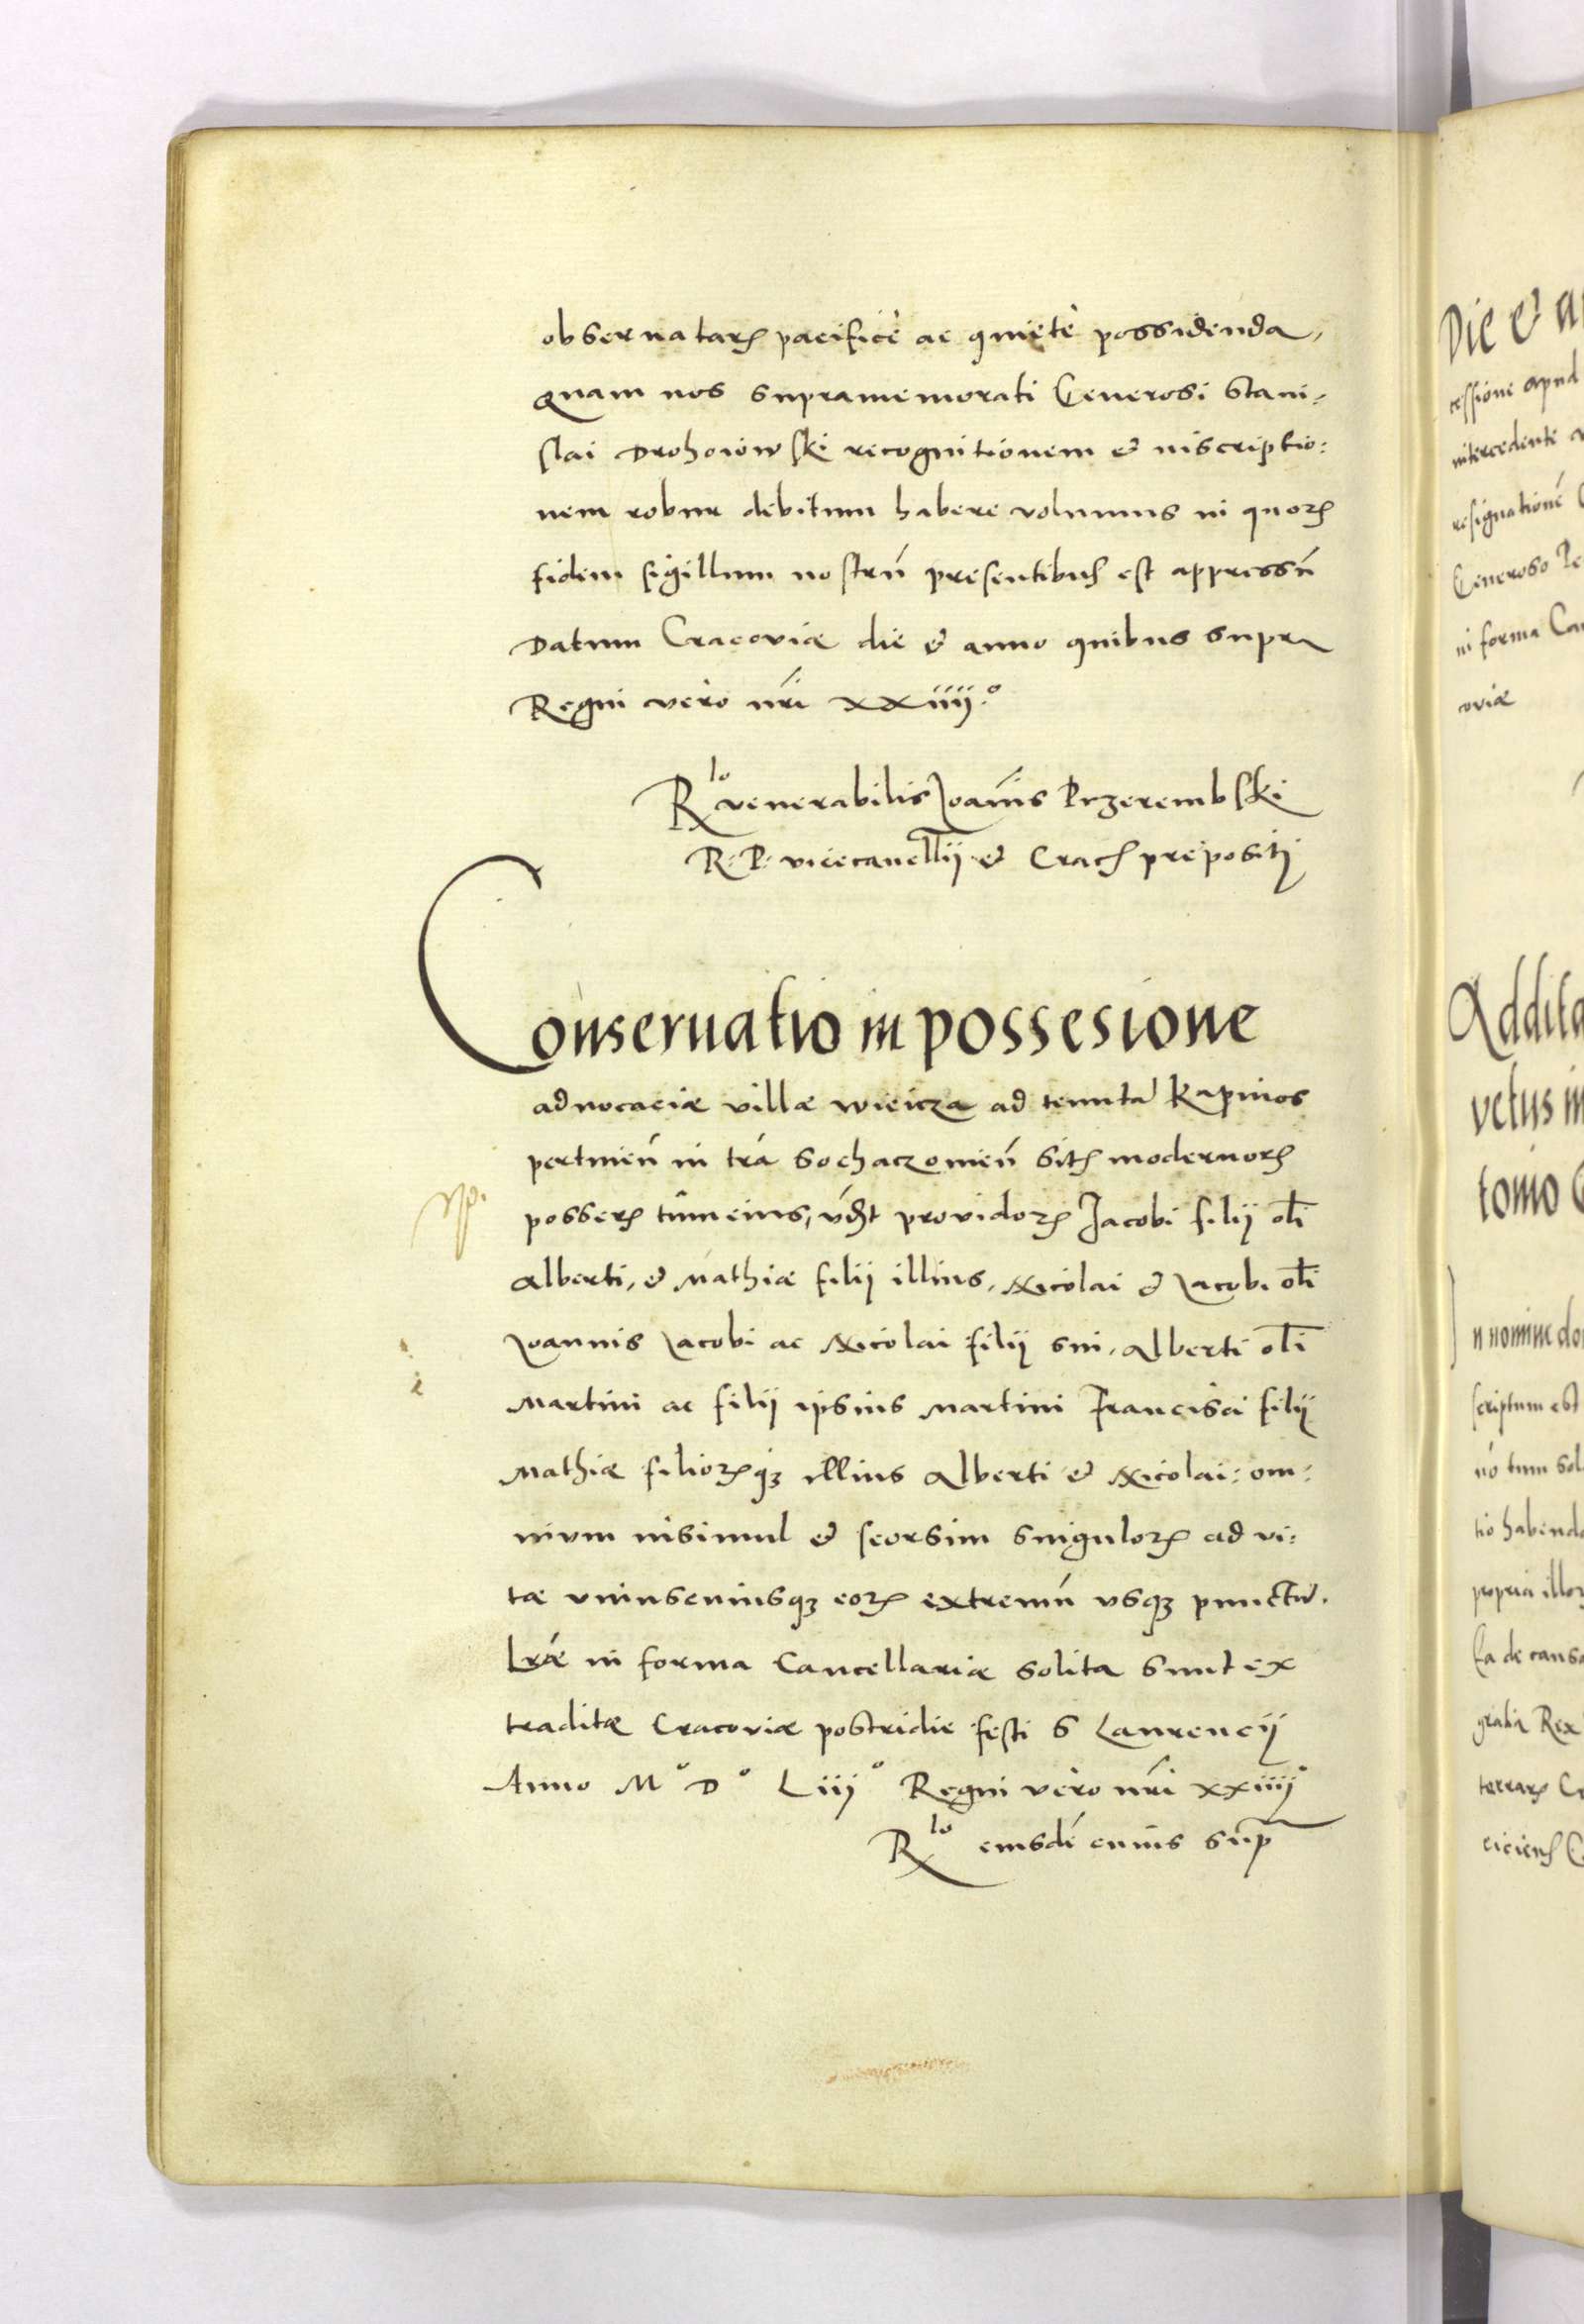 obseruatarꝝ pacificè ac quietè possidenda,
Quam nos supramemorati Generosi Stani-
slai Drohoiowski recognitionem & inscriptio-
nem robur debitum habere volumus in quorꝝ
fidem sigillum nostrũ presentibus est appressũ
Datum Cracoviæ die & anno quibus supra
Regni vero nr̃i XXiiij.°
Rlo venerabilis Joañis Przerembski
R. P. vicecancellij & Crac prepositj
Conseruatio in possesione
aduocaciæ villæ Wieicza ad tenutã Kapinos
pertineñ in tr̃a Sochaczouieñ sit modernorꝝ
possessorꝝ eius, vdzt providorꝝ Jacobi filij oli
Alberti, & Mathiæ filij illius, Nicolai & Jacobi oli
Joannis Jacobi ac Nicolai filij sui, Alberti oli
Martini ac filij ipsius Martini Francisci filij
Mathiæ filiorꝝq3 illius Alberti & Nicolai: om-
nium insimul & seorsim singulorꝝ ad vi-
tæ vniuscuiusq3 eorꝝ extremũ vsq3 punctũ.
Lr̃æ in forma Cancellariæ solita sunt ex
traditæ Cracoviæ postridie festi S Laurencij
Anno M° D° Liij° Regni vero nr̃i xxiiij°
Rlo eiusdẽ cuius sup̃
Die &
cessione apud
intercedente
resignationẽ
Generoso
in forma
coviæ
Addita
vetus in
tomo
n nomine do
scriptum est
nõ tum sol
tio habenda
propria illor
Ea de causa
gratia Rex
terrarꝝ